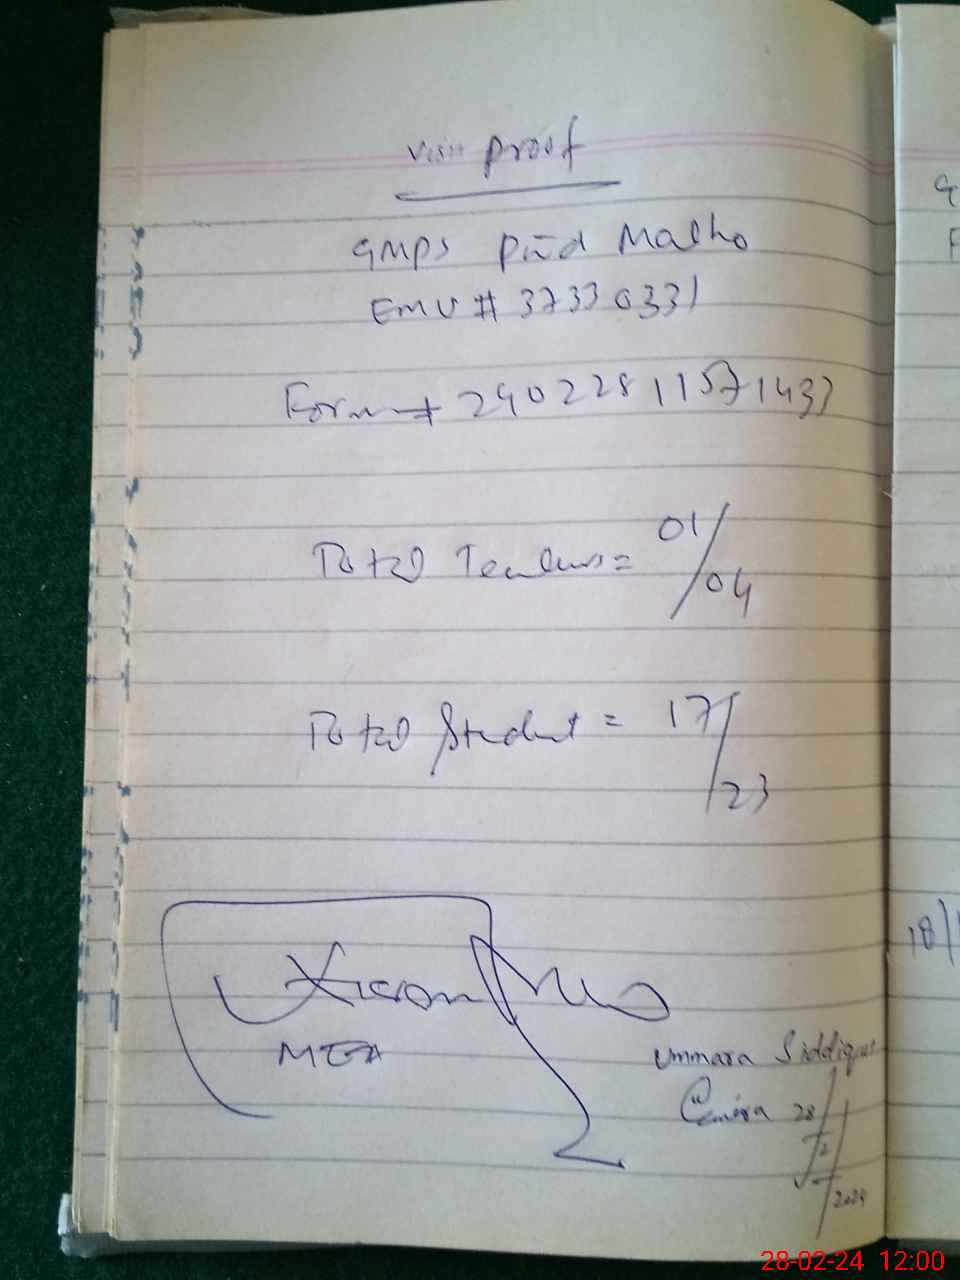 Visit Proof
GMPS Pind Malho
EMU # 37330331
Form # 2402281157143
Total Teachers = 01/04
Total Student = 17/23
MEA
Ummara Siddique
28/2/2024
G
F
18/
28-02-24 12:00